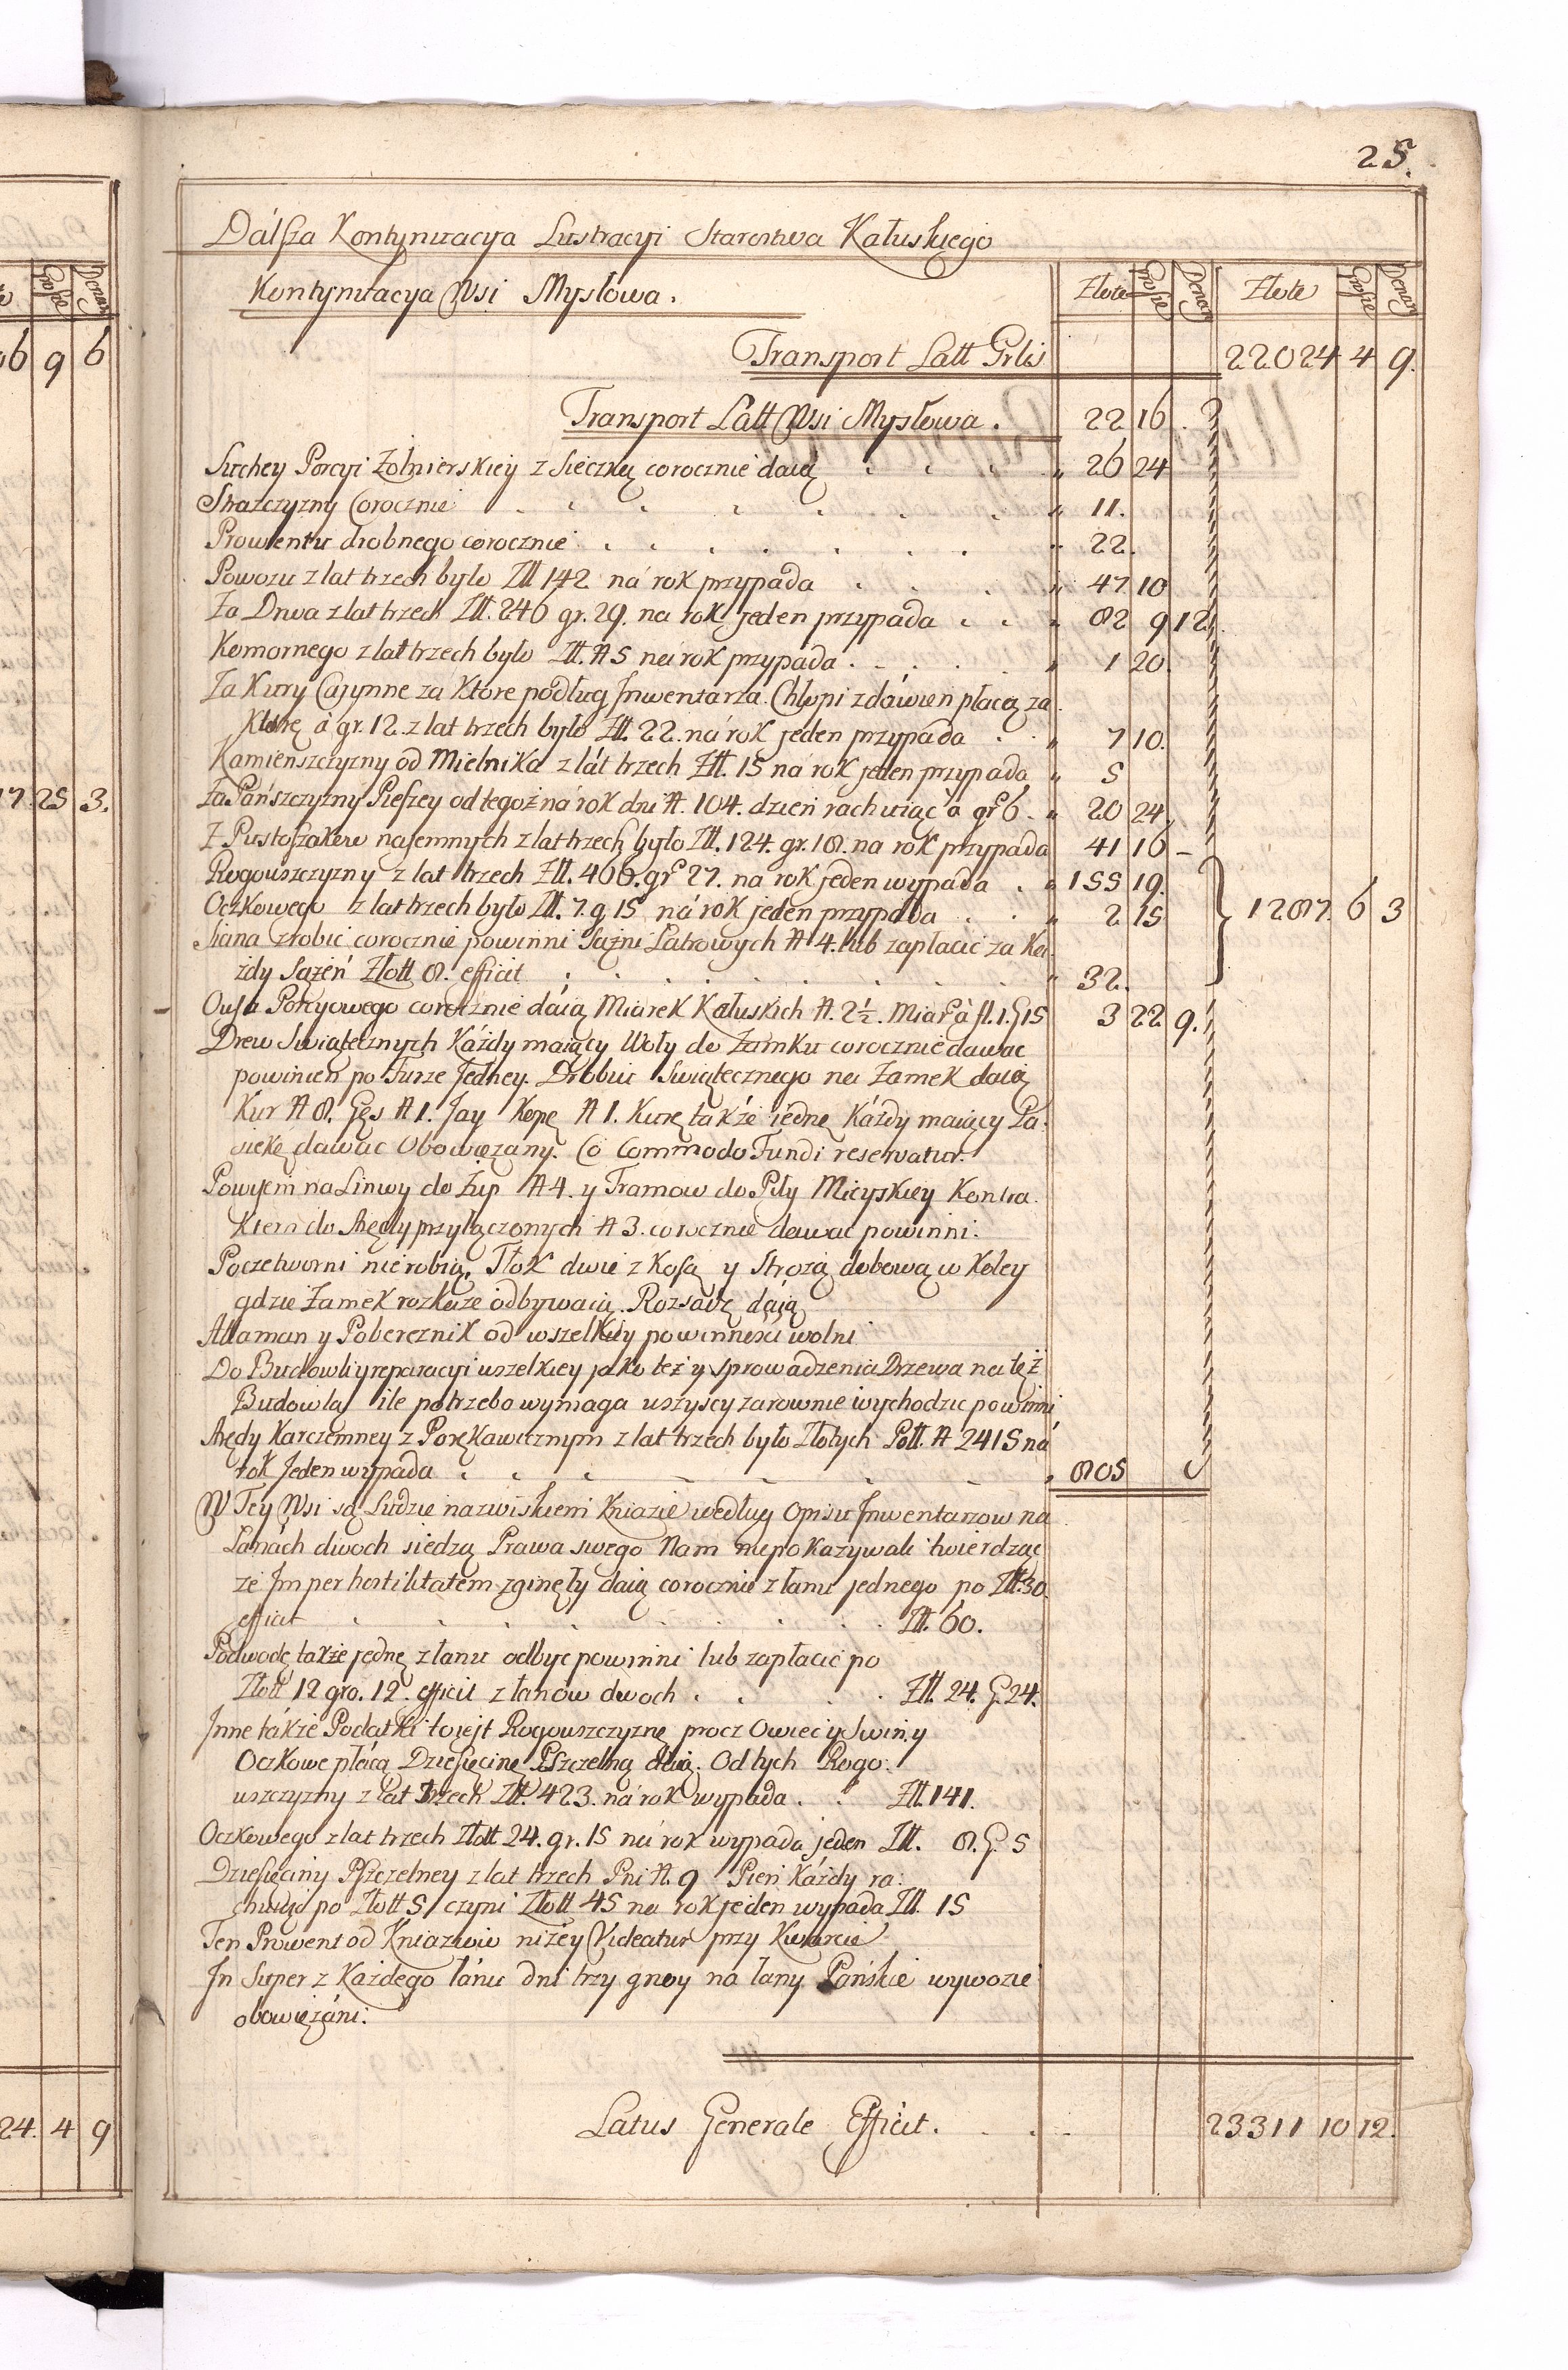 25.
Dálsza Kontynuacya Lustracyi Starostwa Kałuskiego
Kontynuacya Wsi Mysłowa. Złote Grosze Denary Złote Grosze Denary
Transport Latt Grlis 22024 4 9.
Transport Latt Wsi Mysłowa. 22 16
Suchey Porcyi Zołnierskiey z Sieczką corocznie daią 26 24
Strażczyzny Corocznie 11.
Prowentu drobnego corocznie 22.
Powozu z lat trzech było Złł 142 ná rok przypada 47 10
Za Drwa z lat trzech Złł. 246 gr. 29. na rok jeden przypada 82 9 12
Komornego z lat trzech było Złł. # 5 ná rok przypada 1 20.
Za Kury Czynne za Które podług Inwentarza Chłopi zdáwień płacą za
Kurę á gr. 12. z lat trzech było Złł. 22. ná rok jeden przypada 7 10.
Kamienszczyzny od Mielnika z lát trzech Złł. 15 ná rok jeden przypada 5
Za Pańszczyzny Pieszey od tegoż ná rok dni #. 104. dzień rachuiąc á gr 6. 20 24
Z Pustoszakow najemnych z lat trzech było Złł. 124. gr. 18. na rok przypada 41 16 –
Rogouszczyzny z lat trzech Złł. 466. gr 27. na rok jeden wypada 155 19.
Oczkowego z lat trzech było Złł. 7. g 15 ná rok jeden przypada 2 15 1287. 6 3
Siana zrobić corocznie powinni Sążni Latrowych # 4. lub zapłacić za Ka-
żdy Sążeń Złott 8. efficit 32.
Owsa Porcyowego corocznie dáią Miarek Kałuskich #. 2½. Miar á fl. 1. g 15 3 22 9.
Drew Swiątecznych Káżdy maiący Woły do Zamku corocznie dawac
powinien po Furze Jedney. Drobiu Swiątecznego na Zamek daią
Kur # 8. Gęs # 1. Jay Kopę # 1. Kurę także iednę Káżdy maiący Pa-
siekę dawac Obowiązany. Co Commodo Fundi reservatur.
Powyiem na Linwy do Żup # 4. y Tramow do Piły Mieyskiey Kontra-
ktem do Arędy przyłączonych # 3. corocznie dawac powinni.
Poczetworni nie robią, Tłok dwie z Kosą y Strożą dobową w Koley
gdzie Zamek rozkaże odbywaią. Rozsadę daią
Attaman y Pobereznik od wszelkiey powinności wolni
Do Budowli y reparacyi wszelkiey jako też y sprowadzenia Drzewa na tęż
Budowlą ile potrzeba wymaga wszyscy zarownie wychodzic powinni
Arędy Karczemney z Porękawicznym z lat trzech było Złotych Poll. # 2415 ná
rok Jeden wypada 805
W Tey Wsi są Ludzie nazwiskiem Kniazie według Opisu Inwentarzow na
Łanách dwoch siedzą Prawa swego Nam niepokazywali twierdząc
ze Im per hostilitatem zginęły daią corocznie z łanu jednego po Złł. 30.
efficit Złł. 60.
Podwodę także jednę z łanu odbyc powinni lub zapłacić po
Złott 12 gro. 12. efficit z łanow dwoch Złł. 24. G. 24.
Inne także Podatki to iest Rogouszczyznę procz Owiec y Swiń y
Oczkowe płácą Dziesięcinę Pszczelną daią. Od tych Rogo-
uszczyzny z lát Trzech Złł. 423. ná rok wypada Złł. 141.
Oczkowego z lat trzech Złott 24. gr. 15 ná rok wypada jeden Złł. 8. G. 5
Dziesięciny Pszczelney z lat trzech Pni #. 9 Pień Káżdy ra-
chuiąc po Złott 5 czyni Złott 45 na rok jeden wypada Złł. 15
Ten Prowent od Kniaziow niżey Videatur przy Kwarcie
In Super z Każdego łánu dni trzy gnoy na łany Pańskie wywozic
obowiązáni.
Latus Generale Efficit. 23311 10 12.